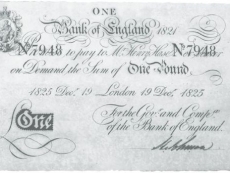 ONE
Bank of England 1821
No. 7948 I promise to pay to Mr. Henry Hase No. 7948
on Demand the Sum of One Pound
1825 Decr. 19 London 19 Decr. 1825
For the Govr. and Compa.
of the Bank of England.
One